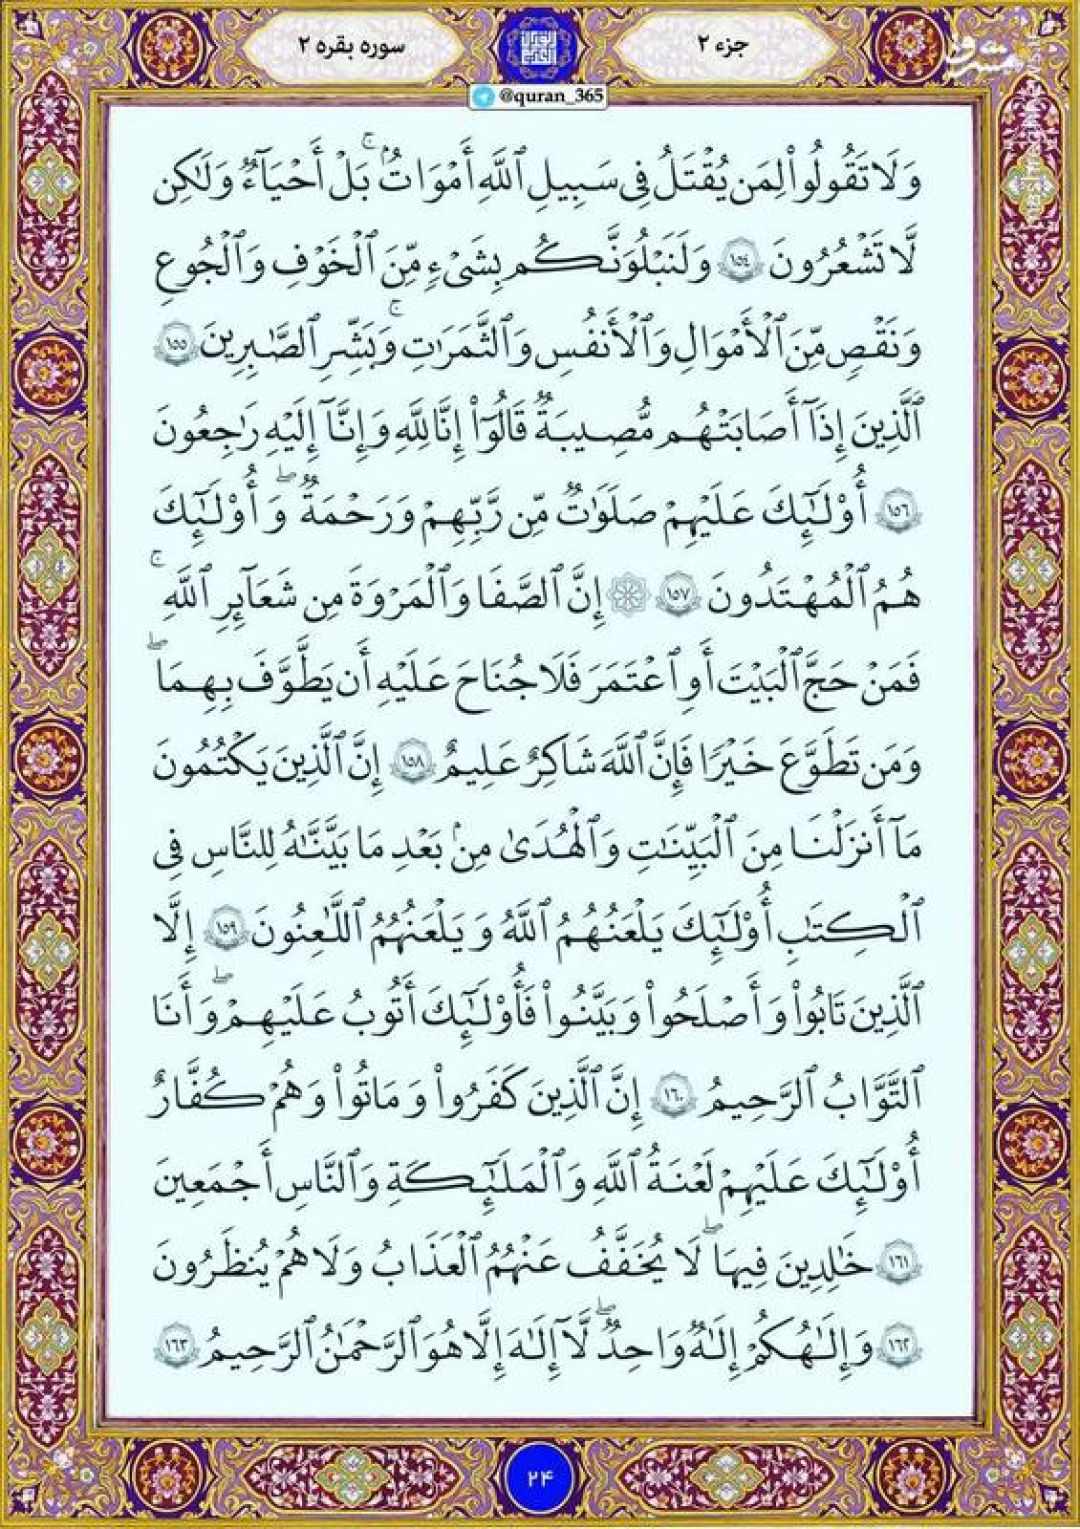 جزء ۲
سوره بقره ۲
@quran_365
وَلَا تَقُولُواْ لِمَن يُقۡتَلُ فِي سَبِيلِ ٱللَّهِ أَمۡوَٰتُۢۚ بَلۡ أَحۡيَآءٞ وَلَٰكِن
لَّا تَشۡعُرُونَ ١٥٤ وَلَنَبۡلُوَنَّكُم بِشَيۡءٖ مِّنَ ٱلۡخَوۡفِ وَٱلۡجُوعِ
وَنَقۡصٖ مِّنَ ٱلۡأَمۡوَٰلِ وَٱلۡأَنفُسِ وَٱلثَّمَرَٰتِۗ وَبَشِّرِ ٱلصَّٰبِرِينَ ١٥٥
ٱلَّذِينَ إِذَآ أَصَٰبَتۡهُم مُّصِيبَةٞ قَالُوٓاْ إِنَّا لِلَّهِ وَإِنَّآ إِلَيۡهِ رَٰجِعُونَ
١٥٦ أُوْلَٰٓئِكَ عَلَيۡهِمۡ صَلَوَٰتٞ مِّن رَّبِّهِمۡ وَرَحۡمَةٞۖ وَأُوْلَٰٓئِكَ
هُمُ ٱلۡمُهۡتَدُونَ ١٥٧ ۞ إِنَّ ٱلصَّفَا وَٱلۡمَرۡوَةَ مِن شَعَآئِرِ ٱللَّهِۖ
فَمَنۡ حَجَّ ٱلۡبَيۡتَ أَوِ ٱعۡتَمَرَ فَلَا جُنَاحَ عَلَيۡهِ أَن يَطَّوَّفَ بِهِمَاۚ
وَمَن تَطَوَّعَ خَيۡرٗا فَإِنَّ ٱللَّهَ شَاكِرٌ عَلِيمٌ ١٥٨ إِنَّ ٱلَّذِينَ يَكۡتُمُونَ
مَآ أَنزَلۡنَا مِنَ ٱلۡبَيِّنَٰتِ وَٱلۡهُدَىٰ مِنۢ بَعۡدِ مَا بَيَّنَّٰهُ لِلنَّاسِ فِي
ٱلۡكِتَٰبِ أُوْلَٰٓئِكَ يَلۡعَنُهُمُ ٱللَّهُ وَيَلۡعَنُهُمُ ٱللَّٰعِنُونَ ١٥٩ إِلَّا
ٱلَّذِينَ تَابُواْ وَأَصۡلَحُواْ وَبَيَّنُواْ فَأُوْلَٰٓئِكَ أَتُوبُ عَلَيۡهِمۡ وَأَنَا
ٱلتَّوَّابُ ٱلرَّحِيمُ ١٦٠ إِنَّ ٱلَّذِينَ كَفَرُواْ وَمَاتُواْ وَهُمۡ كُفَّارٌ
أُوْلَٰٓئِكَ عَلَيۡهِمۡ لَعۡنَةُ ٱللَّهِ وَٱلۡمَلَٰٓئِكَةِ وَٱلنَّاسِ أَجۡمَعِينَ
١٦١ خَٰلِدِينَ فِيهَا لَا يُخَفَّفُ عَنۡهُمُ ٱلۡعَذَابُ وَلَا هُمۡ يُنظَرُونَ
١٦٢ وَإِلَٰهُكُمۡ إِلَٰهٞ وَٰحِدٞۖ لَّآ إِلَٰهَ إِلَّا هُوَ ٱلرَّحۡمَٰنُ ٱلرَّحِيمُ ١٦٣
۲۴